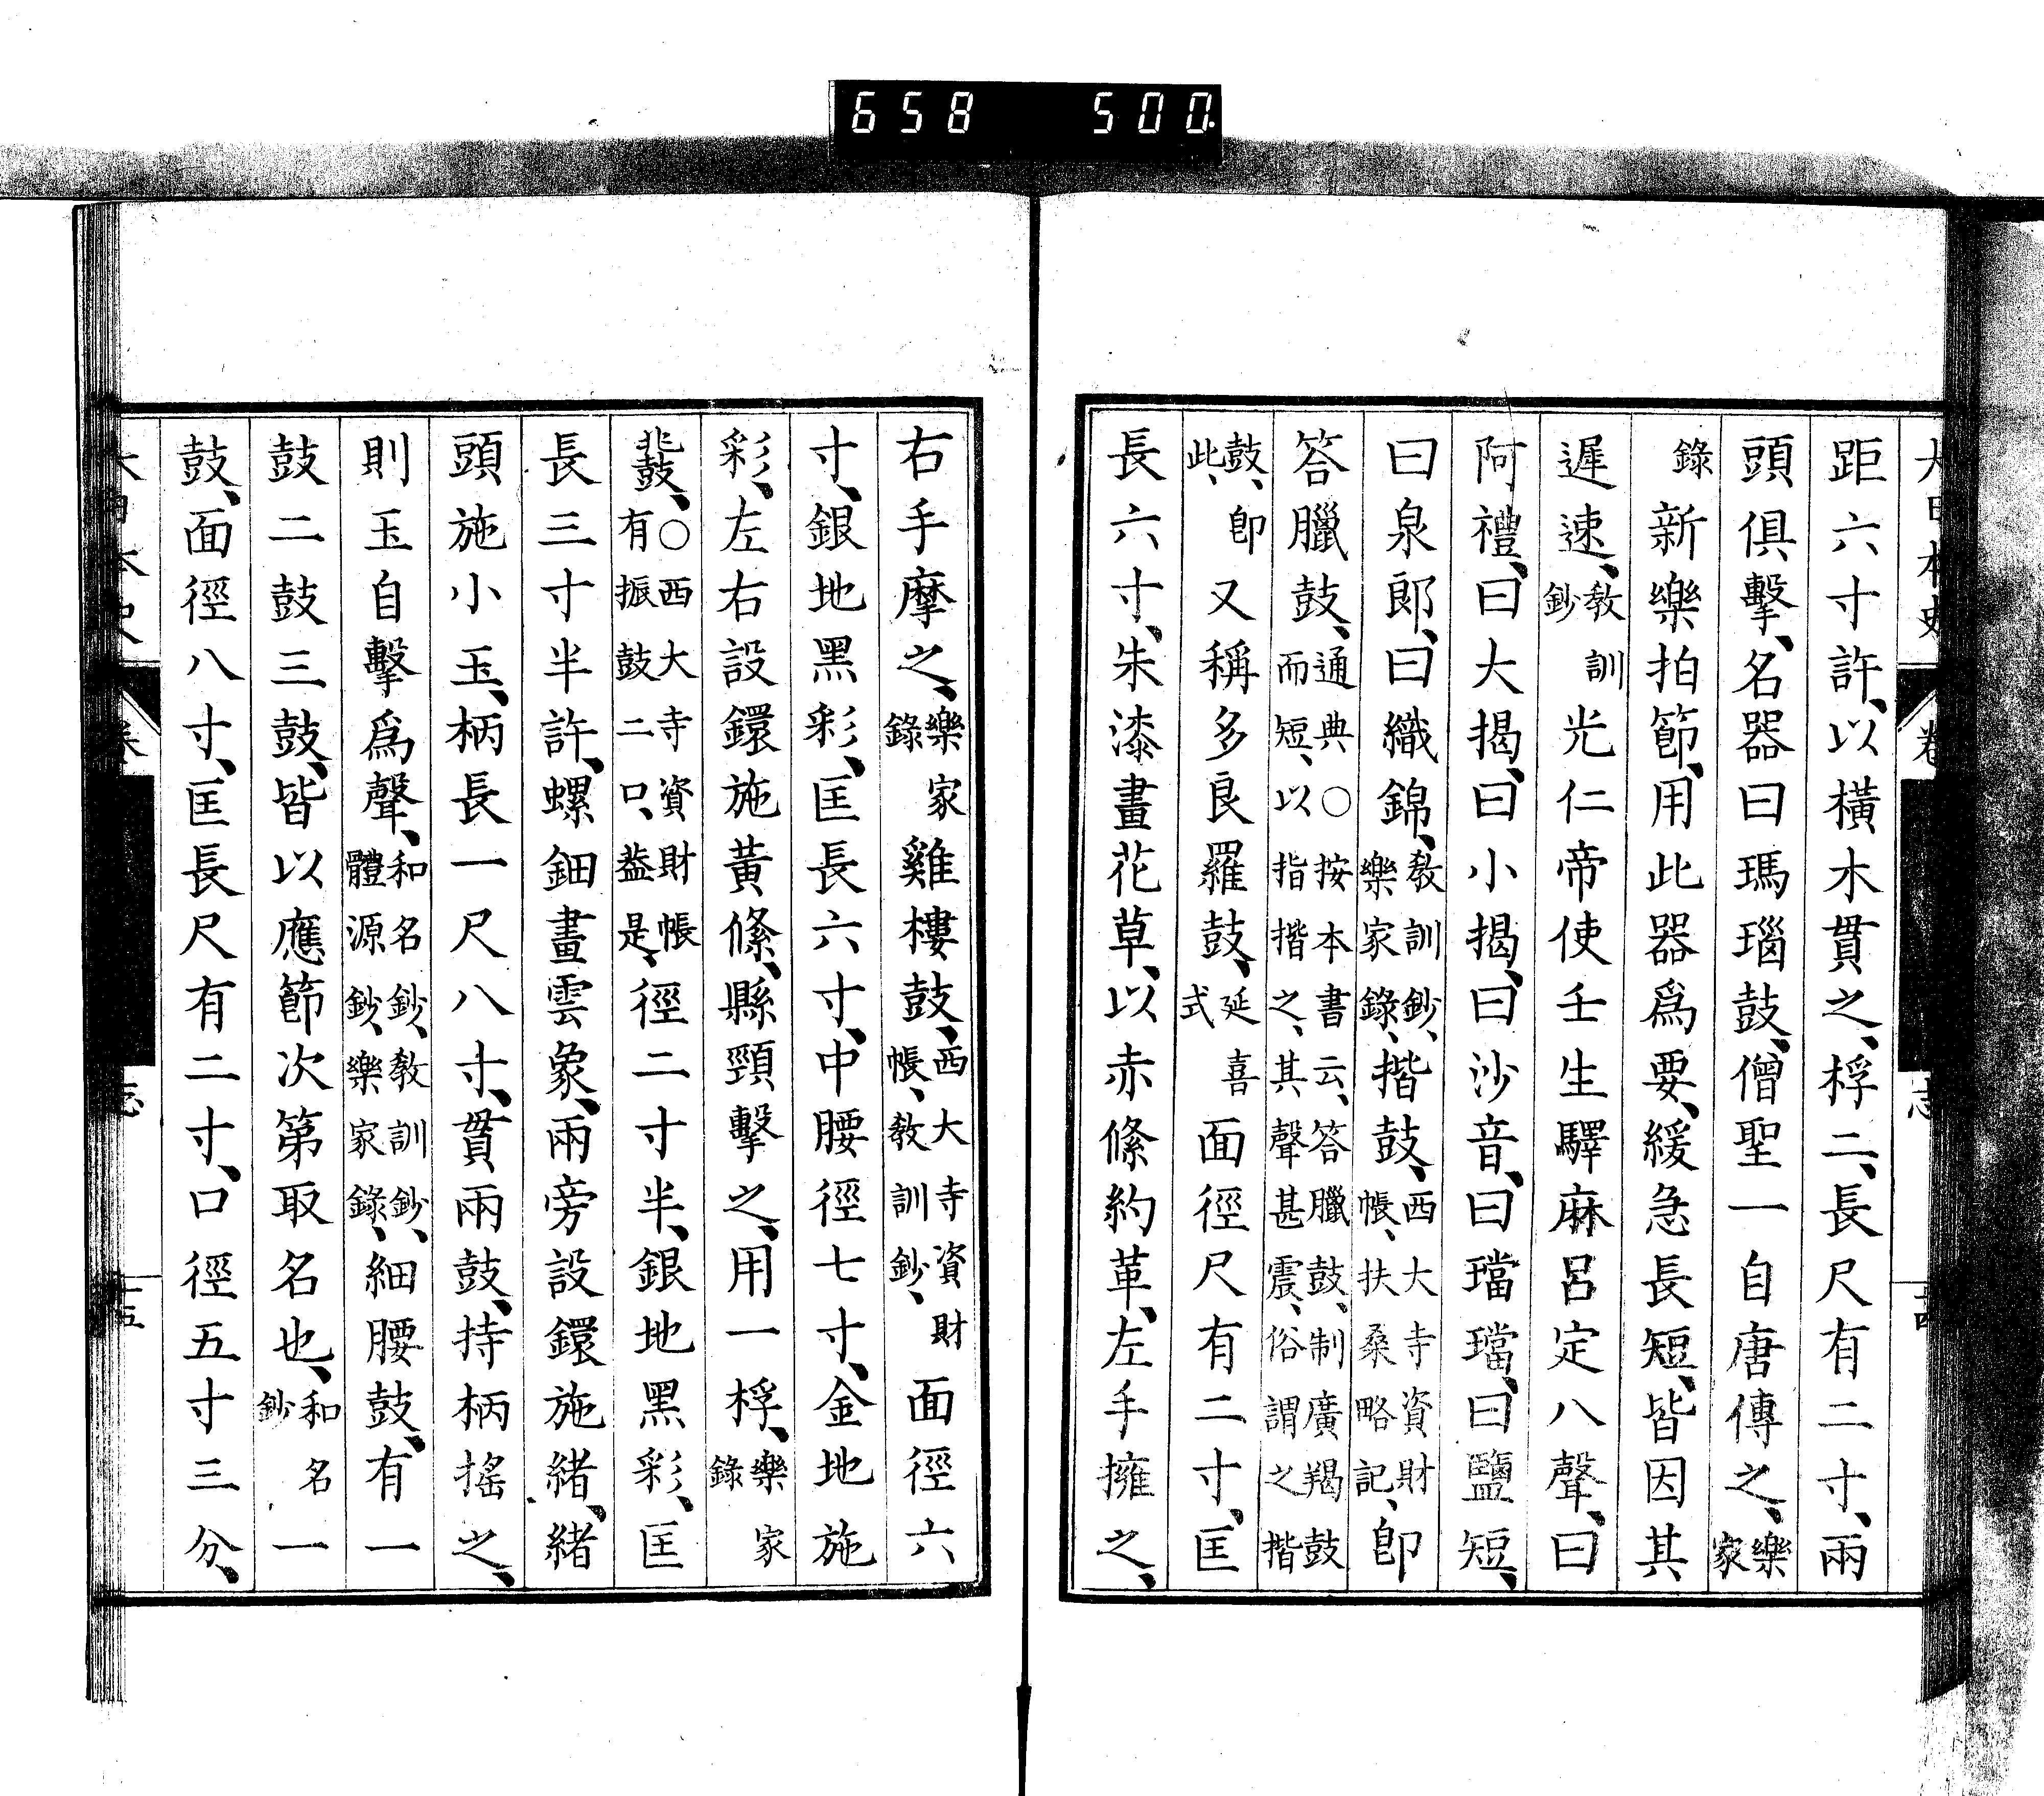 658 500
大日本史 卷 志 十四
距六寸許、以橫木貫之、桴二、長尺有二寸、兩
頭俱擊、名器曰瑪瑙鼓、僧聖一自唐傳之、樂家
錄新樂拍節、用此器爲要、緩急長短、皆因其
遲速、教訓鈔光仁帝使壬生驛麻呂定八聲、曰
阿禮、曰大揭、曰小揭、曰沙音、曰璫璫、曰鹽短、
曰泉郞、曰織錦、教訓鈔、樂家錄、揩鼓、西大寺資財帳、扶桑略記、卽
答臘鼓、通典○按本書云、答臘鼓、制廣羯鼓而短、以指揩之、其聲甚震、俗謂之揩
鼓、卽此、又稱多良羅鼓、延喜式面徑尺有二寸、匡
長六寸、朱漆畫花草、以赤絛約革、左手擁之、
右手摩之、樂家錄雞樓鼓、西大寺資財帳、教訓鈔、面徑六
寸、銀地黑彩、匡長六寸、中腰徑七寸、金地施
彩、左右設鐶施黃絛、縣頸擊之、用一桴、樂家錄
鼗鼓、○西大寺資財帳有振鼓二口、蓋是、徑二寸半、銀地黑彩、匡
長三寸半許、螺鈿畫雲象、兩旁設鐶施緒、緒
頭施小玉、柄長一尺八寸、貫兩鼓、持柄搖之、
則玉自擊爲聲、和名鈔、教訓鈔、體源鈔、樂家錄、細腰鼓、有一
鼓二鼓三鼓、皆以應節次第取名也、和名鈔一
鼓、面徑八寸、匡長尺有二寸、口徑五寸三分、
大日本史 卷 志 十五